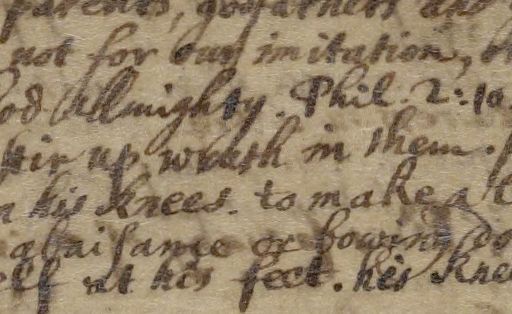 parents, godfathers and
not for our imitation,
od Allmighty. Phil. 2:10
stir up wrath in them.
n his knees. to make a
abaisance or bowing do
elf at his feet. his knee